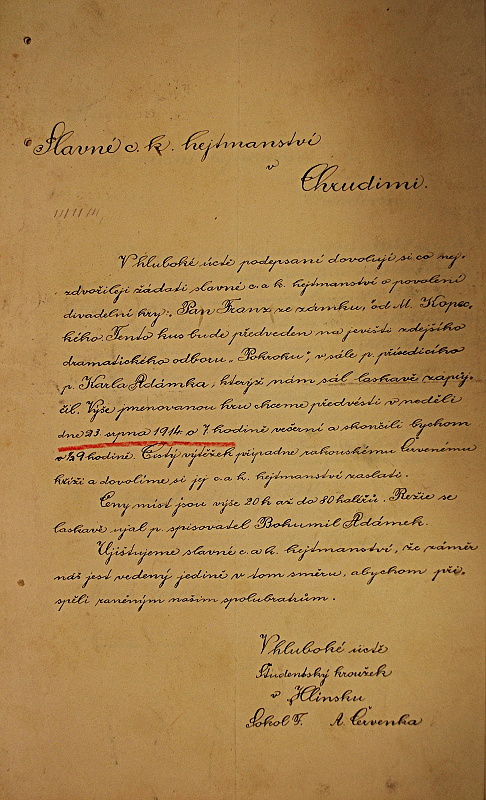 Slavné c. k. hejtmanství
v
Chrudimi.
V hluboké úctě podepsaní dovolují si co nej-
zdvořileji žádati slavné c. a k. hejtmanství o povolení
divadelní hry: „Pan Franz ze zámku," od M. Kopec-
kého. Tento kus bude předveden na jevišti zdejšího
dramatického odboru „Pokroku", v sále p. přísedícího
p. Karla Adámka, kterýž nám sál laskavě zapůj-
čil. Výše jmenovanou hru chceme předvésti v neděli
dne 23. srpna 1914 o 7. hodině večerní a skončili bychom
o ½9 hodině. Čistý výtěžek připadne rakouskému Červenému
kříži a dovolíme si jej c. a k. hejtmanství zaslati.
Ceny míst jsou výše 20 h až do 80 haléřů. Režie se
laskavě ujal p. spisovatel Bohumil Adámek.
Ujišťujeme slavné c. a k. hejtmanství, že záměr
náš jest vedený jedině v tom směru, abychom při-
spěli raněným našim spolubratřům.
V hluboké úctě
Studentský kroužek
v Hlinsku
Sokol F. A. Červenka